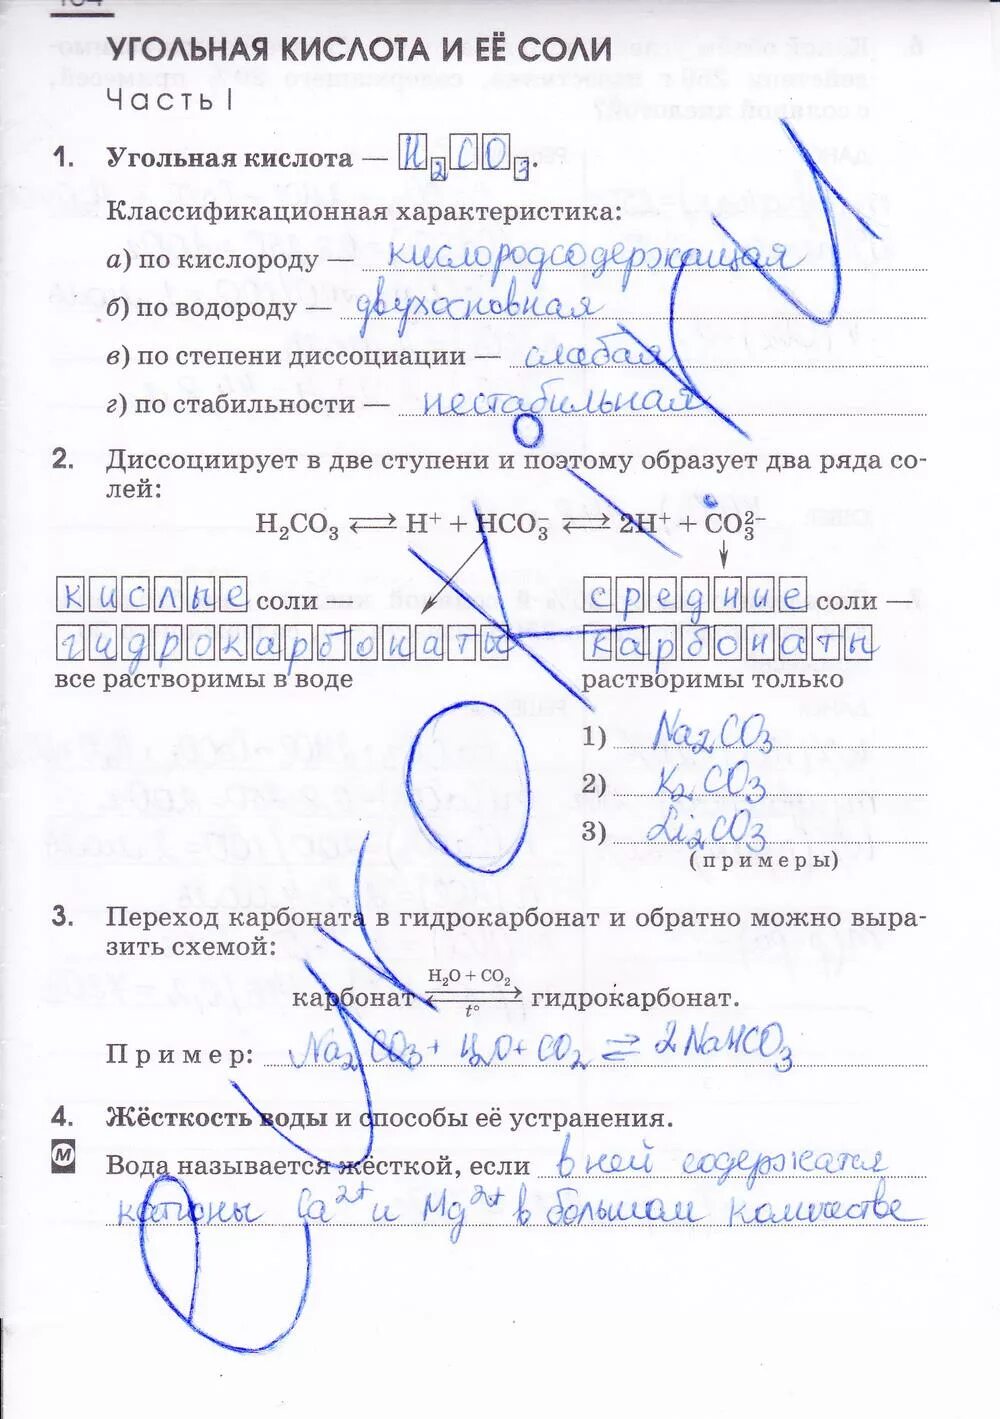 УГОЛЬНАЯ КИСЛОТА И ЕЁ СОЛИ
Часть I
1. Угольная кислота — H₂CO₃.
Классификационная характеристика:
а) по кислороду — кислородсодержащая
б) по водороду — двухосновная
в) по степени диссоциации — слабая
г) по стабильности — нестабильная
2. Диссоциирует в две ступени и поэтому образует два ряда со-
лей:
H₂CO₃ ⇄ H⁺ + HCO₃⁻ ⇄ 2H⁺ + CO₃²⁻
кислые соли — средние соли —
гидрокарбонаты карбонаты
все растворимы в воде растворимы только
1) Na₂CO₃
2) K₂CO₃
3) Li₂CO₃
(примеры)
3. Переход карбоната в гидрокарбонат и обратно можно выра-
зить схемой:
H₂O + CO₂
карбонат ⇄ гидрокарбонат.
t°
Пример: Na₂CO₃ + H₂O + CO₂ ⇄ 2NaHCO₃
4. Жёсткость воды и способы её устранения.
М
Вода называется жёсткой, если в ней содержатся
катионы Ca²⁺ и Mg²⁺ в большом количестве